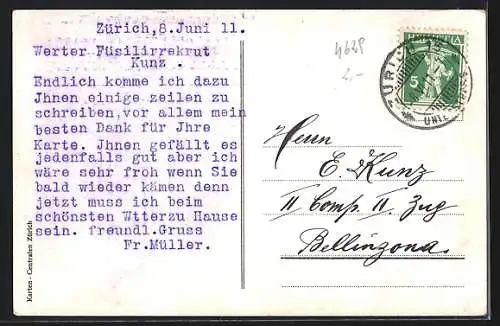 Zürich,8.Juni 11.
Werter Füsilirrekrut
Kunz .
Endlich komme ich dazu
Jhnen einige zeilen zu
schreiben,vor allem mein
besten Dank für Jhre
Karte. Jhnen gefällt es
jedenfalls gut aber ich
wäre sehr froh wenn Sie
bald wieder kämen denn
jetzt muss ich beim
schönsten Wtterzu Hause
sein. freundl.Gruss
Fr.Müller.
Karten - Centralen Zürich
HELVETIA
5
Herrn
E. Kunz
II Comp. II. Zug
Bellinzona.